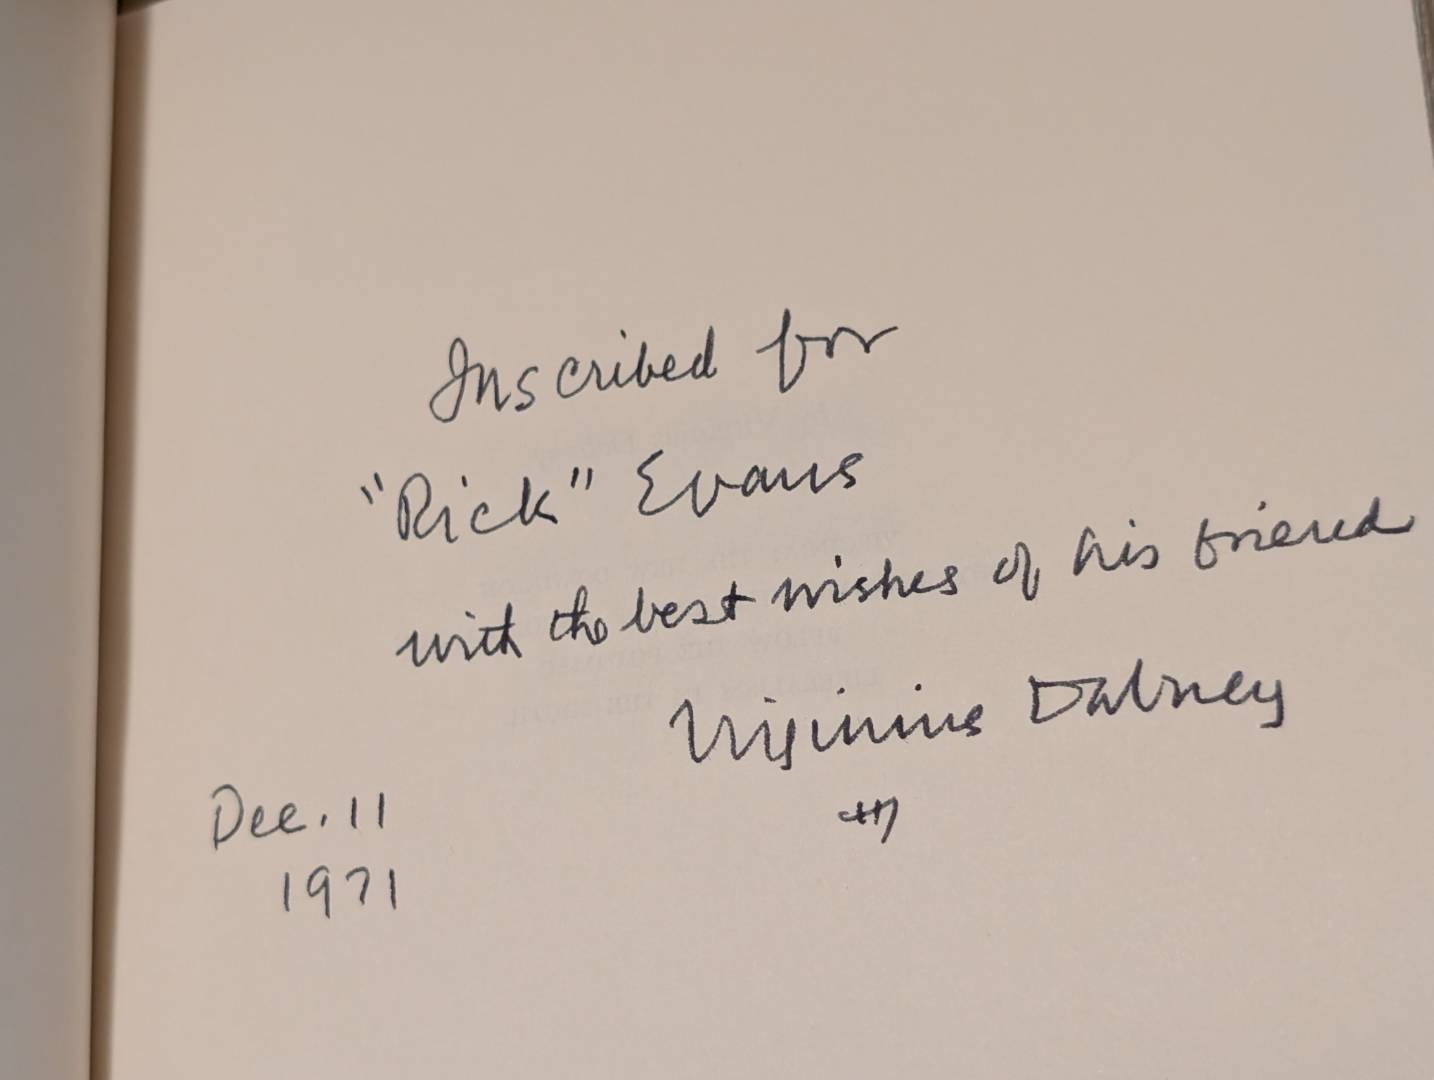 Inscribed for
"Rick" Evans
with the best wishes of his friend
Virginius Dabney
Dec. 11
1971